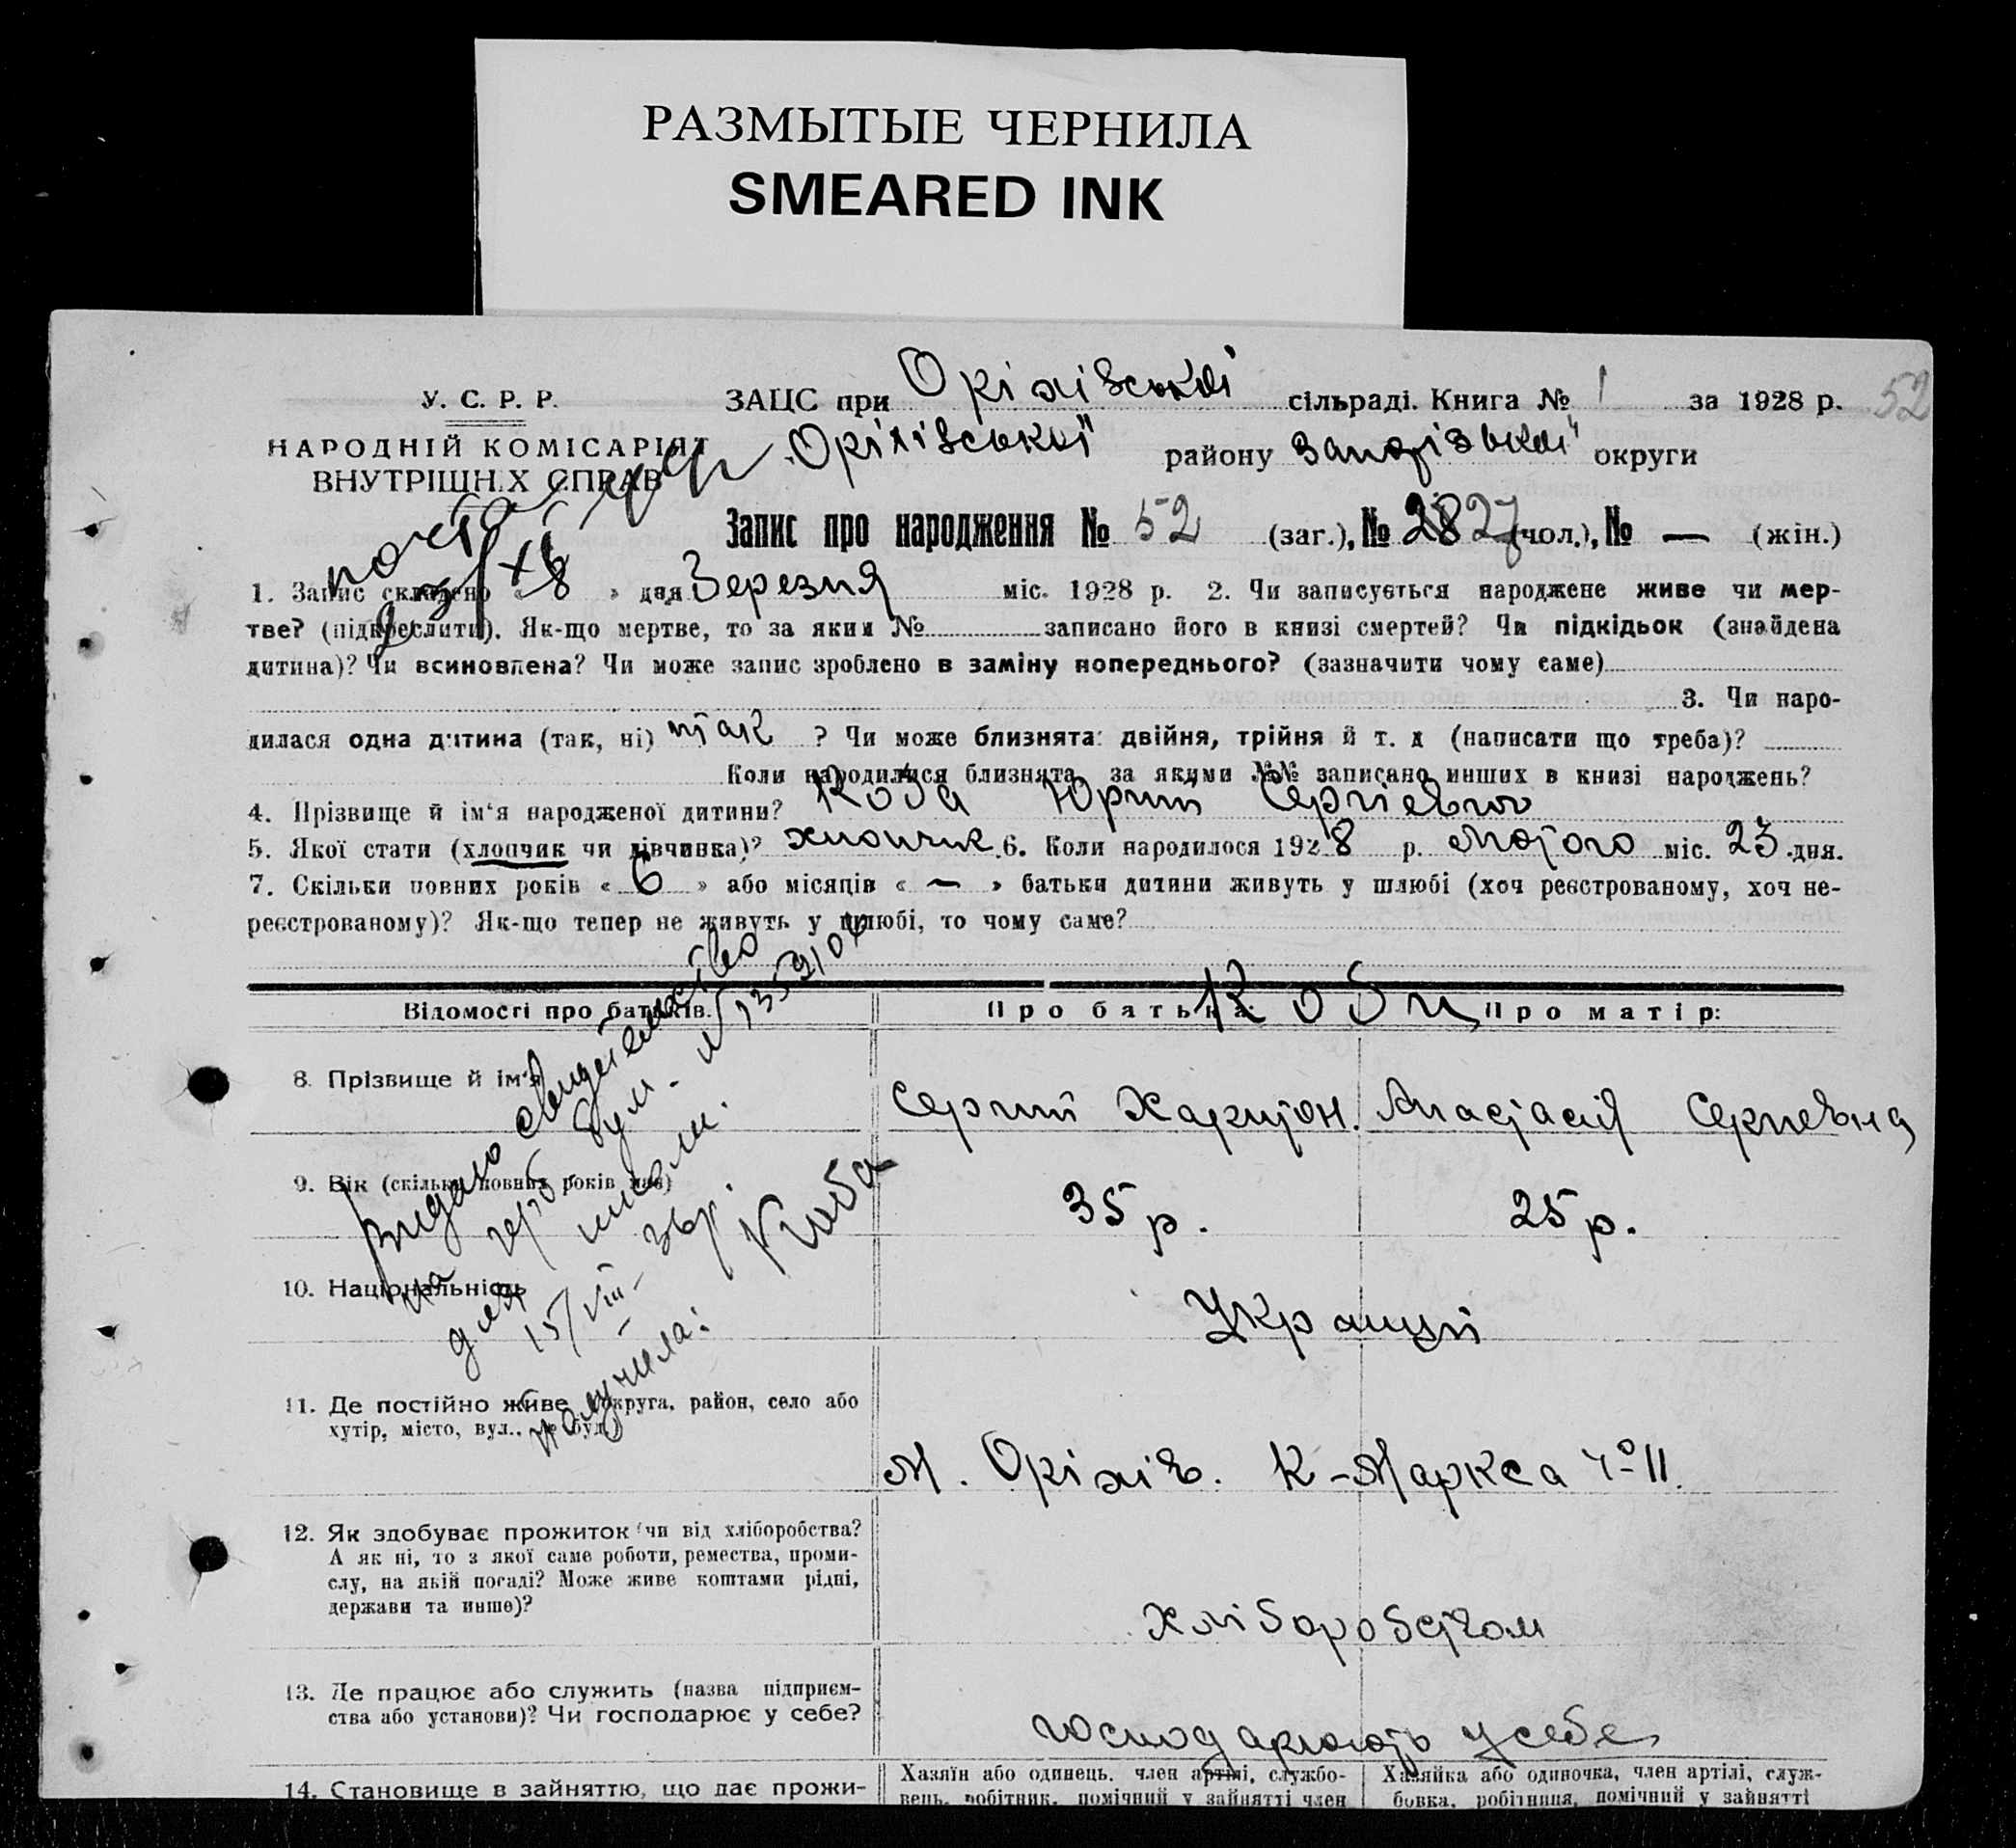 РАЗМЫТЫЕ ЧЕРНИЛА
SMEARED INK
52
У. С. Р. Р.
НАРОДНІЙ КОМІСАРІЯТ
ВНУТРІШНІХ СПРАВ
ЗАЦС при Оріхівській сільраді. Книга № 1 за 1928 р.
Оріхівської району Запорізької округи
Запис про народження № 52 (заг.), № 28 27 (чол.), № — (жін.)
1. Запис складено « 8 » дня Березня міс. 1928 р. 2. Чи записується народжене живе чи мер-
тве? (підкреслити). Як-що мертве, то за яким № записано його в книзі смертей? Чи підкідьок (знайдена
дитина)? Чи всиновлена? Чи може запис зроблено в заміну попереднього? (зазначити чому саме)
3. Чи наро-
дилася одна дитина (так, ні) так ? Чи може близнята: двійня, трійня й т. д (написати що треба)?
Коли народилися близнята, за якими №№ записано инших в книзі народжень?
4. Прізвище й ім'я народженої дитини? Коба Юрий Сергієвич
5. Якої стати (хлопчик чи дівчинка)? хлопчик. 6. Коли народилося 1928 р. Лютого міс. 23 дня.
7. Скільки повних років « 6 » або місяців « — » батьки дитини живуть у шлюбі (хоч реєстрованому, хоч не-
реєстрованому)? Як-що тепер не живуть у шлюбі, то чому саме?
Відомості про батьків. Про батька Коби Про матір:
8. Прізвище й ім'я Сергий Харитон. Анастасія Сергиевна
9. Вік (скільки повних років має) 35 р. 25 р.
10. Національність Українці
11. Де постійно живе (округа, район, село або
хутір, місто, вул., № буд.)
М. Оріхів. К-Маркса Ч° 11.
12. Як здобуває прожиток (чи від хліборобства?
А як ні, то з якої саме роботи, ремества, проми-
слу, на якій посаді? Може живе коштами рідні,
держави та инше)?
Хліборобством
13. Де працює або служить (назва підприєм-
ства або установи)? Чи господарює у себе?
господарюють у себе
14. Становище в зайняттю, що дає прожи-
Хазяїн або одинець, член артілі, службо-
вець, робітник, помічний у зайнятті член
Хазяйка або одиночка, член артілі, служ-
бовка, робітниця, помічний у зайнятті
Видано свидетельство
на герб бум. №
для школи.
15/VIII- 36 р.
получила: Коба